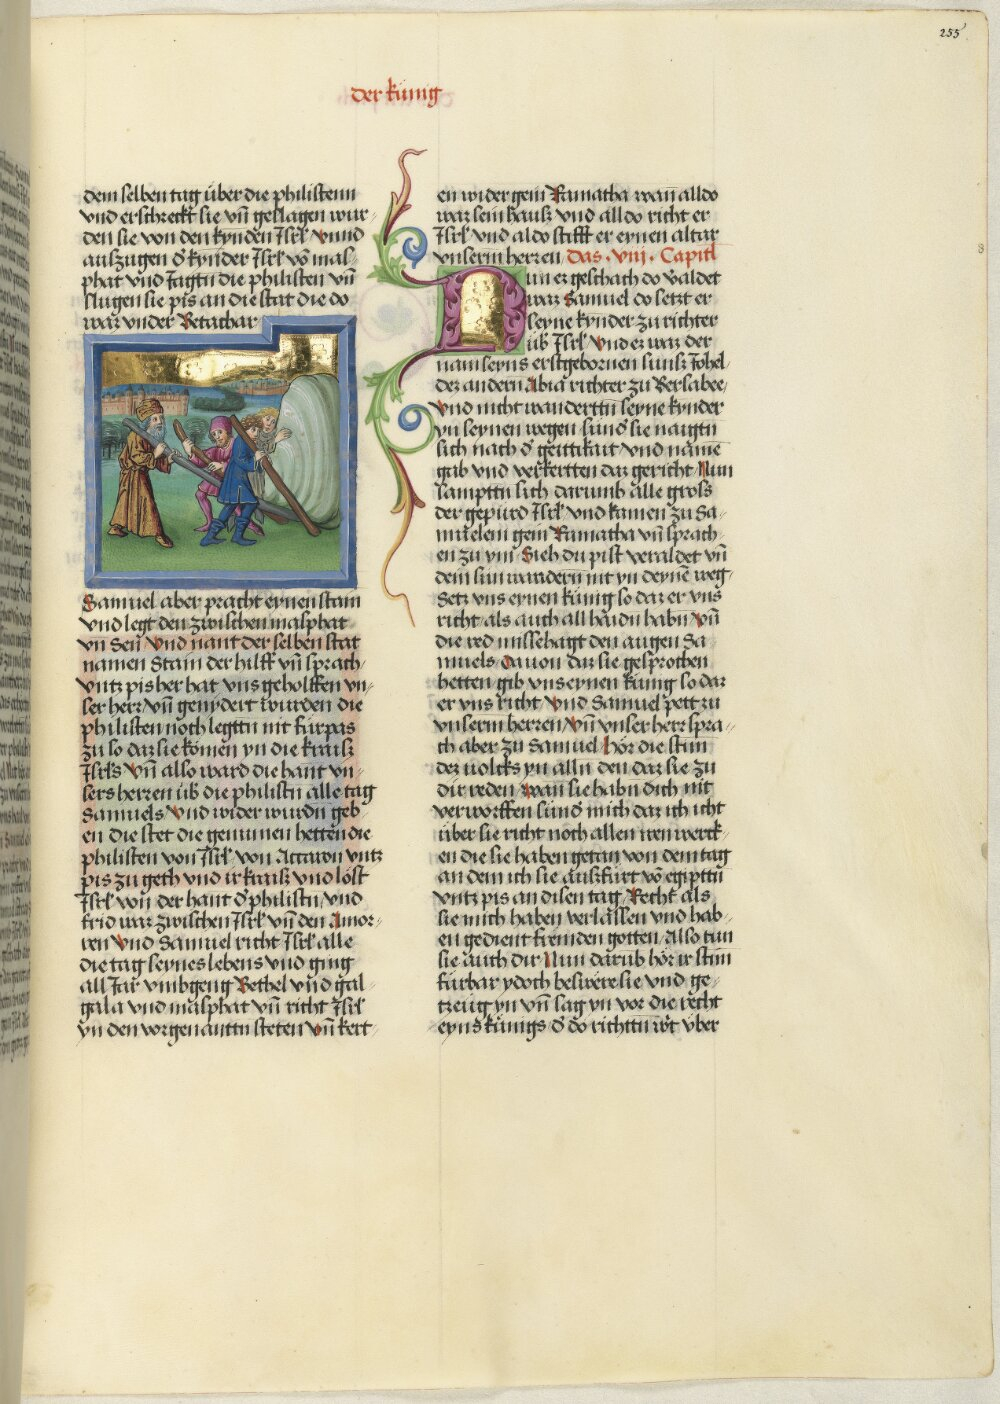 255
der künig
dem selben tag über die philistenn
vnd erschreckt sie vn̄ geslagen wur-
den sie von den kynden Isrl̄ vnnd
auszugen d̓ kynder Isrl̄ vō mas-
phat vnd Iagtn̄ die philisten vn̄
slugen sie pis an die stat die do
waz vnder Betachar
Samuel aber pracht eynen stain
vnd legt den zwischen masphat
vn̄ Sen vnd nant der selben stat
namen Stain der hilff vn̄ sprach
vntz pis her hat vns geholffen vn-
ser herr vn̄ genydert wurden die
philisten noch legttn̄ nit fürpas
zu so daz sie kömen yn die kraisz
Isrl̄s vn̄ also ward die hant vn-
sers herzen üb̄ die philistn̄ alle tag
Samuels vnd wider wurdn̄ geb-
en die stet die genumen hetten die
philisten von Isrl̄ von Accaron vntz
pis zu geth vnd ir kraisz vnd löst
Isrl̄ von der hant d̓ philistn̄ vnd
frid waz zwischen Isrl̄ vn̄ den Amor-
ren vnd Samuel richt Isrl̄ alle
die tag seynes lebens vnd ging
all Iar vmbgeng Bethel vnd gal-
gala vnd masphat vn̄ richt Isrl̄
yn den vorgenanttn̄ steten vn̄ kert
en wider gein Ramatha wan̄ alldo
waz sein hausz vnd all do richt er
Isrl̄ vnd al do stifft er eynen altar
vnserm herzen Das viii Capitl
Nun ez geschach do Waldet
waz Samuel do setzt er
seyne kynder zu richter
üb̄ Isrl̄ vnd ez waz der
nam seyns erstgebornen sunsz Johel
dez andern Abia richter zu Bersabee
vnd nicht wandertn̄ seyne kynder
yn seynen wegen sund̓ sie naigtn̄
sich nach d̓ geittikait vnd näme
gab vnd verkertten daz gericht Nun
samptn̄ sich darumb alle gross
der gepurd Isrl̄ vnd kamen zu Sa-
muelem gein Ramatha vn̄ sprach-
en zu ym Sieh du pist veraldet vn̄
dein sun wandern nit yn deynē weg-
Setz vns eynen künig so daz er vns
richt als auch all haidn̄ habn̄ vn̄
die red misshagt den augen Sa
muels Dauon daz sie gesprochen
hetten gib vns eynen künig so daz
er vns richt vnd Samuel pett zu
vnserm herzen vn̄ vnser herr spra-
ch aber zu Samuel hör die stim
dez uolcks yn alln̄ den daz sie zu
dir reden wan̄ sie habn̄ dich nit
verworffen sund̓ mich daz ich icht
über sie richt noch allen iren werck-
en die sie haben getan von dem tag
an dem ich sie auszfürt vō egipttn̄
vntz pis an disen tag Recht als
sie mich haben verlassen vnd hab-
en gedient fremden gotten also tun
sie auch dir Nun darūb hör ir stim
fürbar ydoch beswere sie vnd ge-
tzeug yn vn̄ sag yn vor die recht
eyns künigs d̓ do richttn̄ wt̓ vber